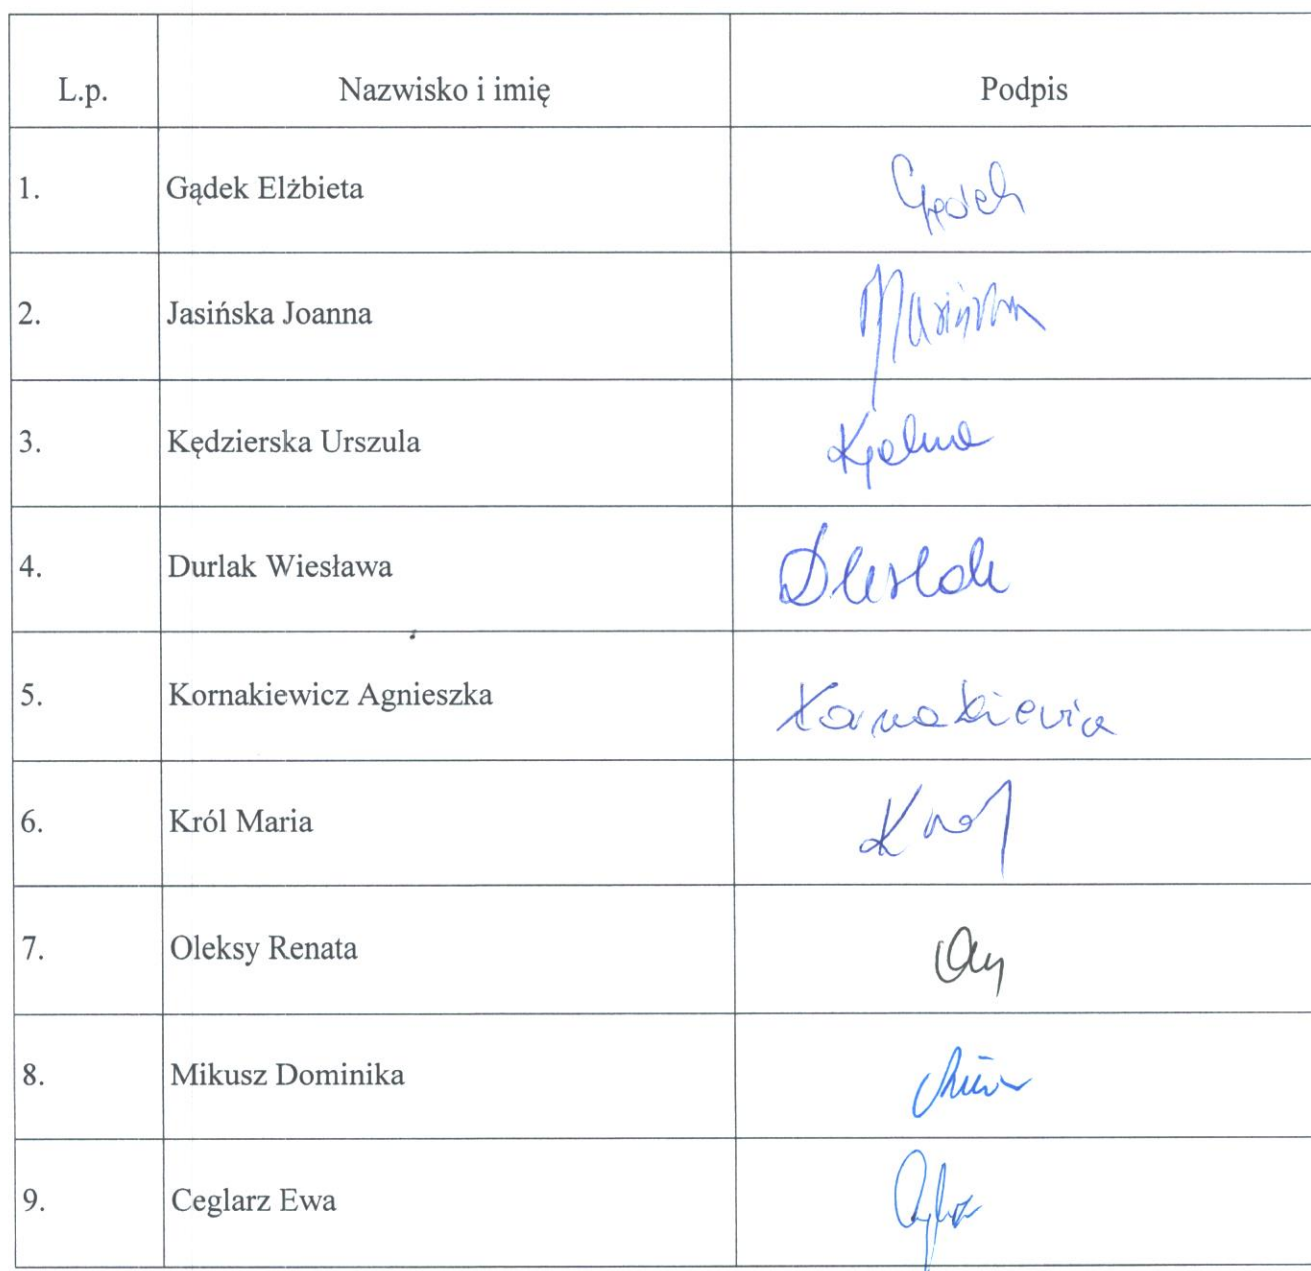 L.p. Nazwisko i imię Podpis
1. Gądek Elżbieta
2. Jasińska Joanna
3. Kędzierska Urszula
4. Durlak Wiesława Durlak
5. Kornakiewicz Agnieszka Kornakiewicz
6. Król Maria Król
7. Oleksy Renata
8. Mikusz Dominika
9. Ceglarz Ewa